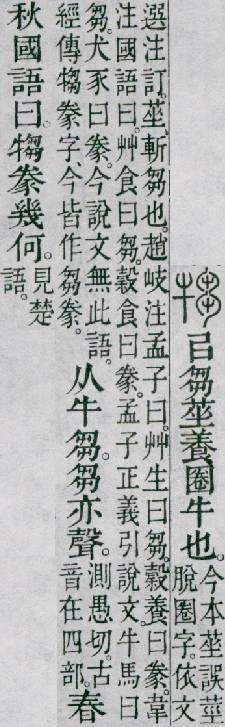 犓 㠯芻莝養圈牛也。今本莝誤莖
脫圈字。依文
選注訂。莝、斬芻也。趙岐注孟子曰。艸生曰芻。穀養曰豢。韋
注國語曰。艸食曰芻。穀食曰豢。孟子正義引說文。牛馬曰
芻。犬豕曰豢。今說文無此語。
經傳犓豢字、今皆作芻豢。
从牛芻。芻亦聲。測愚切。古
音在四部。春
秋國語曰。犓豢幾何。見楚
語。